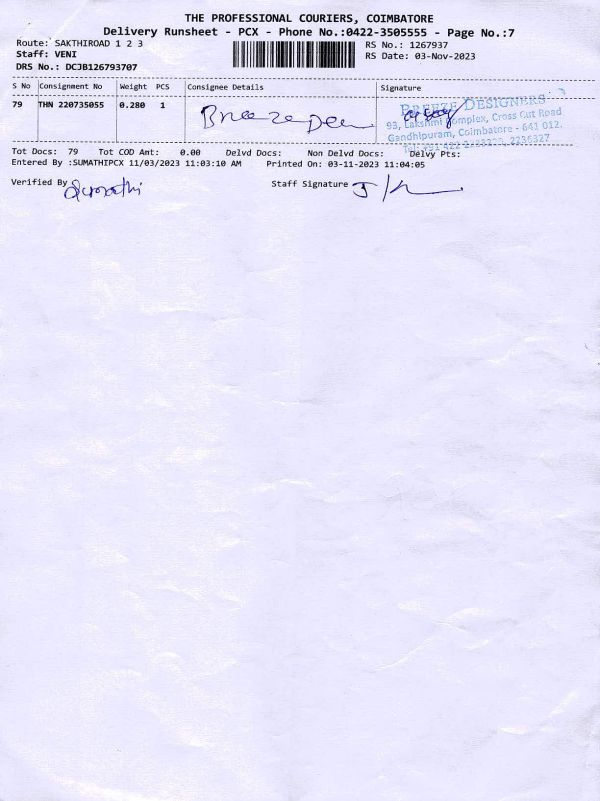 THE PROFESSIONAL COURIERS, COIMBATORE
Delivery Runsheet - PCX - Phone No.:0422-3505555 - Page No.:7
Route: SAKTHIROAD 1 2 3
RS No.: 1267937
Staff: VENI
RS Date: 03-Nov-2023
DRS No.: DCJB126793707
S No Consignment No Weight PCS Consignee Details Signature
79 THN 220735055 0.280 1 Breeze
BREEZE DESIGNERS
93, Lakshmi Complex, Cross Cut Road
Gandhipuram, Coimbatore - 641 012.
Tot Docs: 79 Tot COD Amt: 0.00 Delvd Docs: Non Delvd Docs: Delvy Pts:
Entered By :SUMATHIPCX 11/03/2023 11:03:10 AM Printed On: 03-11-2023 11:04:05
Verified By Sumathi Staff Signature